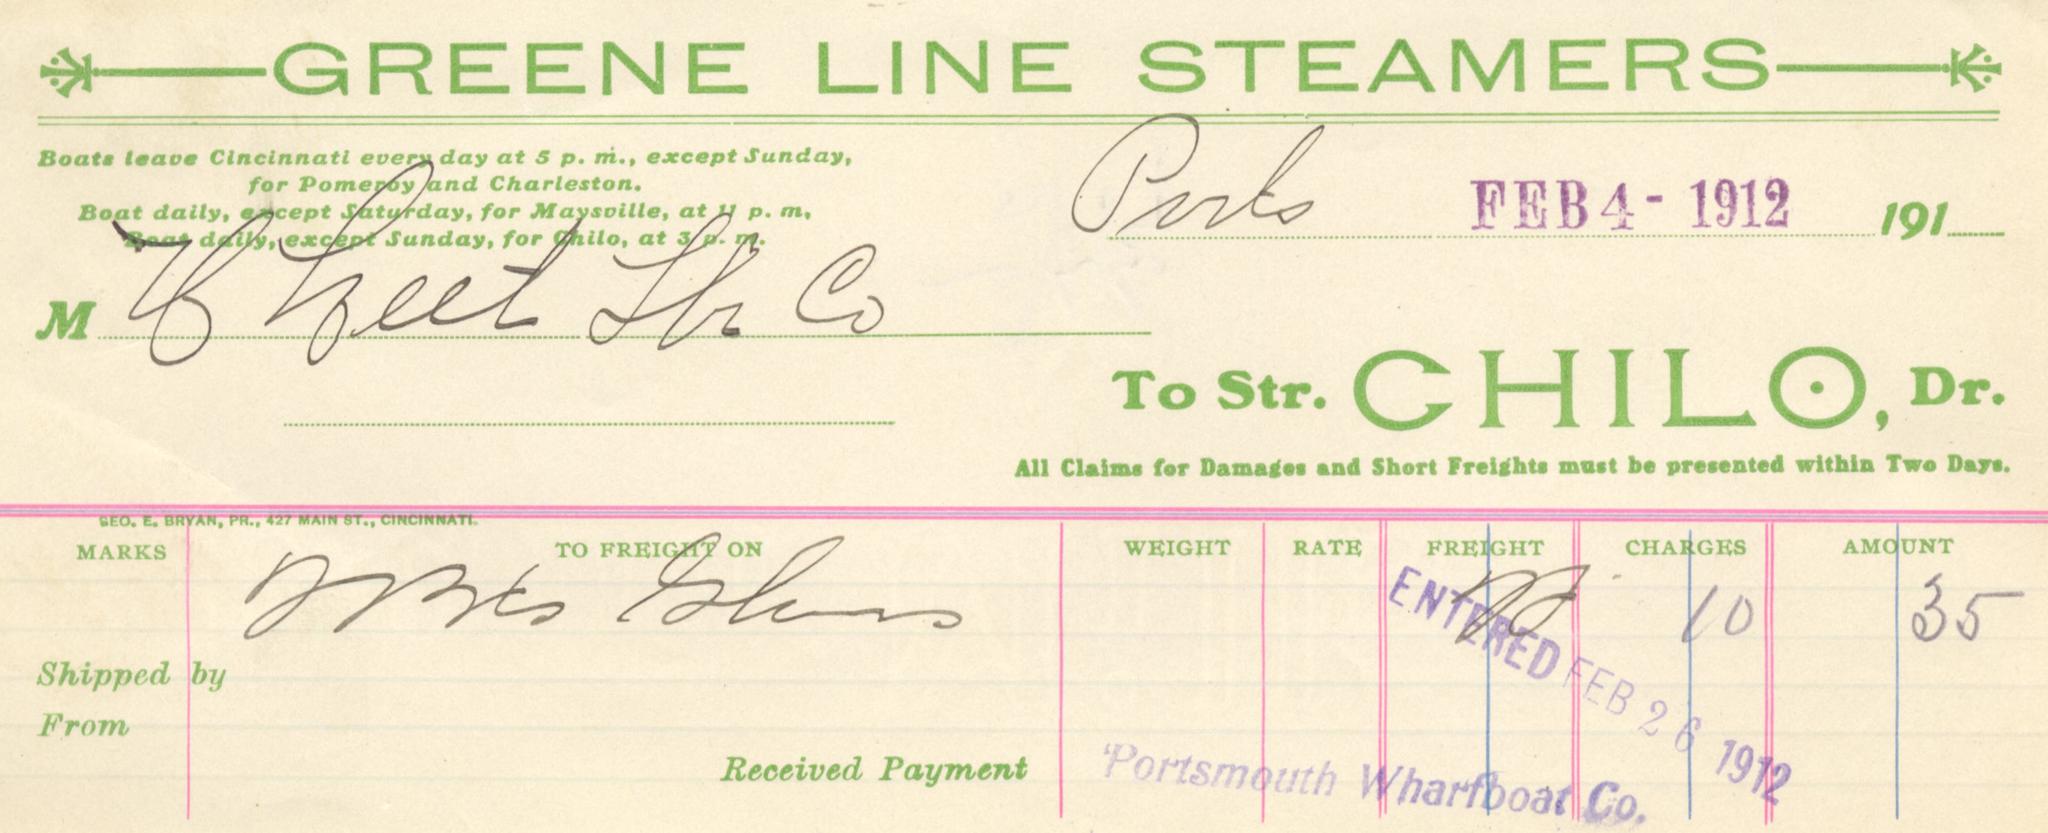 GREENE LINE STEAMERS
Boats leave Cincinnati every day at 5 p. m., except Sunday,
for Pomeroy and Charleston.
Boat daily, except Saturday, for Maysville, at 11 p. m,
Boat daily, except Sunday, for Chilo, at 3 p. m.
FEB 4 - 1912 191
M Co
To Str. CHILO, Dr.
All Claims for Damages and Short Freights must be presented within Two Days.
GEO. E. BRYAN, PR., 427 MAIN ST., CINCINNATI.
MARKS TO FREIGHT ON WEIGHT RATE FREIGHT CHARGES AMOUNT
10 35
ENTERED FEB 26 1912
Shipped by
From
Received Payment Portsmouth Wharfboat Co.